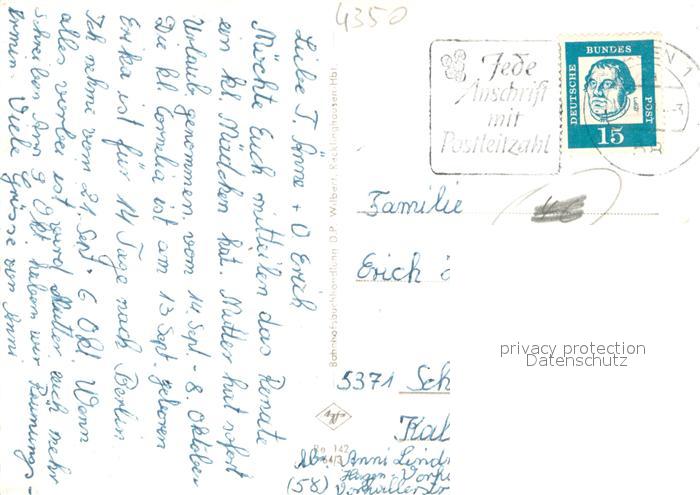 4350
Liebe T. Änne + O Erich
Möchte Euch mitteilen das Renate
ein kl. Mädchen hat. Mutter hat sofort
Urlaub genommen vom 14. Sept. - 8. Oktober
Die kl. Cornelia ist am 13 Sept. geboren
Erika ist für 14 Tage nach Berlin
Ich nehme vom 21. Sept - 6 Okt Wenn
alles vorbei ist wird Mutter euch mehr
schreiben Am 9 Okt haben wir Räumungs-
termin Viele Grüsse von Anni
Bahnhofsbuchhandlung D.P. Wilbert, Recklinghausen Hbf
142
Jede
Anschrift
mit
Postleitzahl
DEUTSCHE
BUNDES
POST
15
Familie
Erich
privacy protection
Datenschutz
5371 Sch
Kal
Abs. Anni Lind
Hagen-Vorh
(58) Vorhaller Str